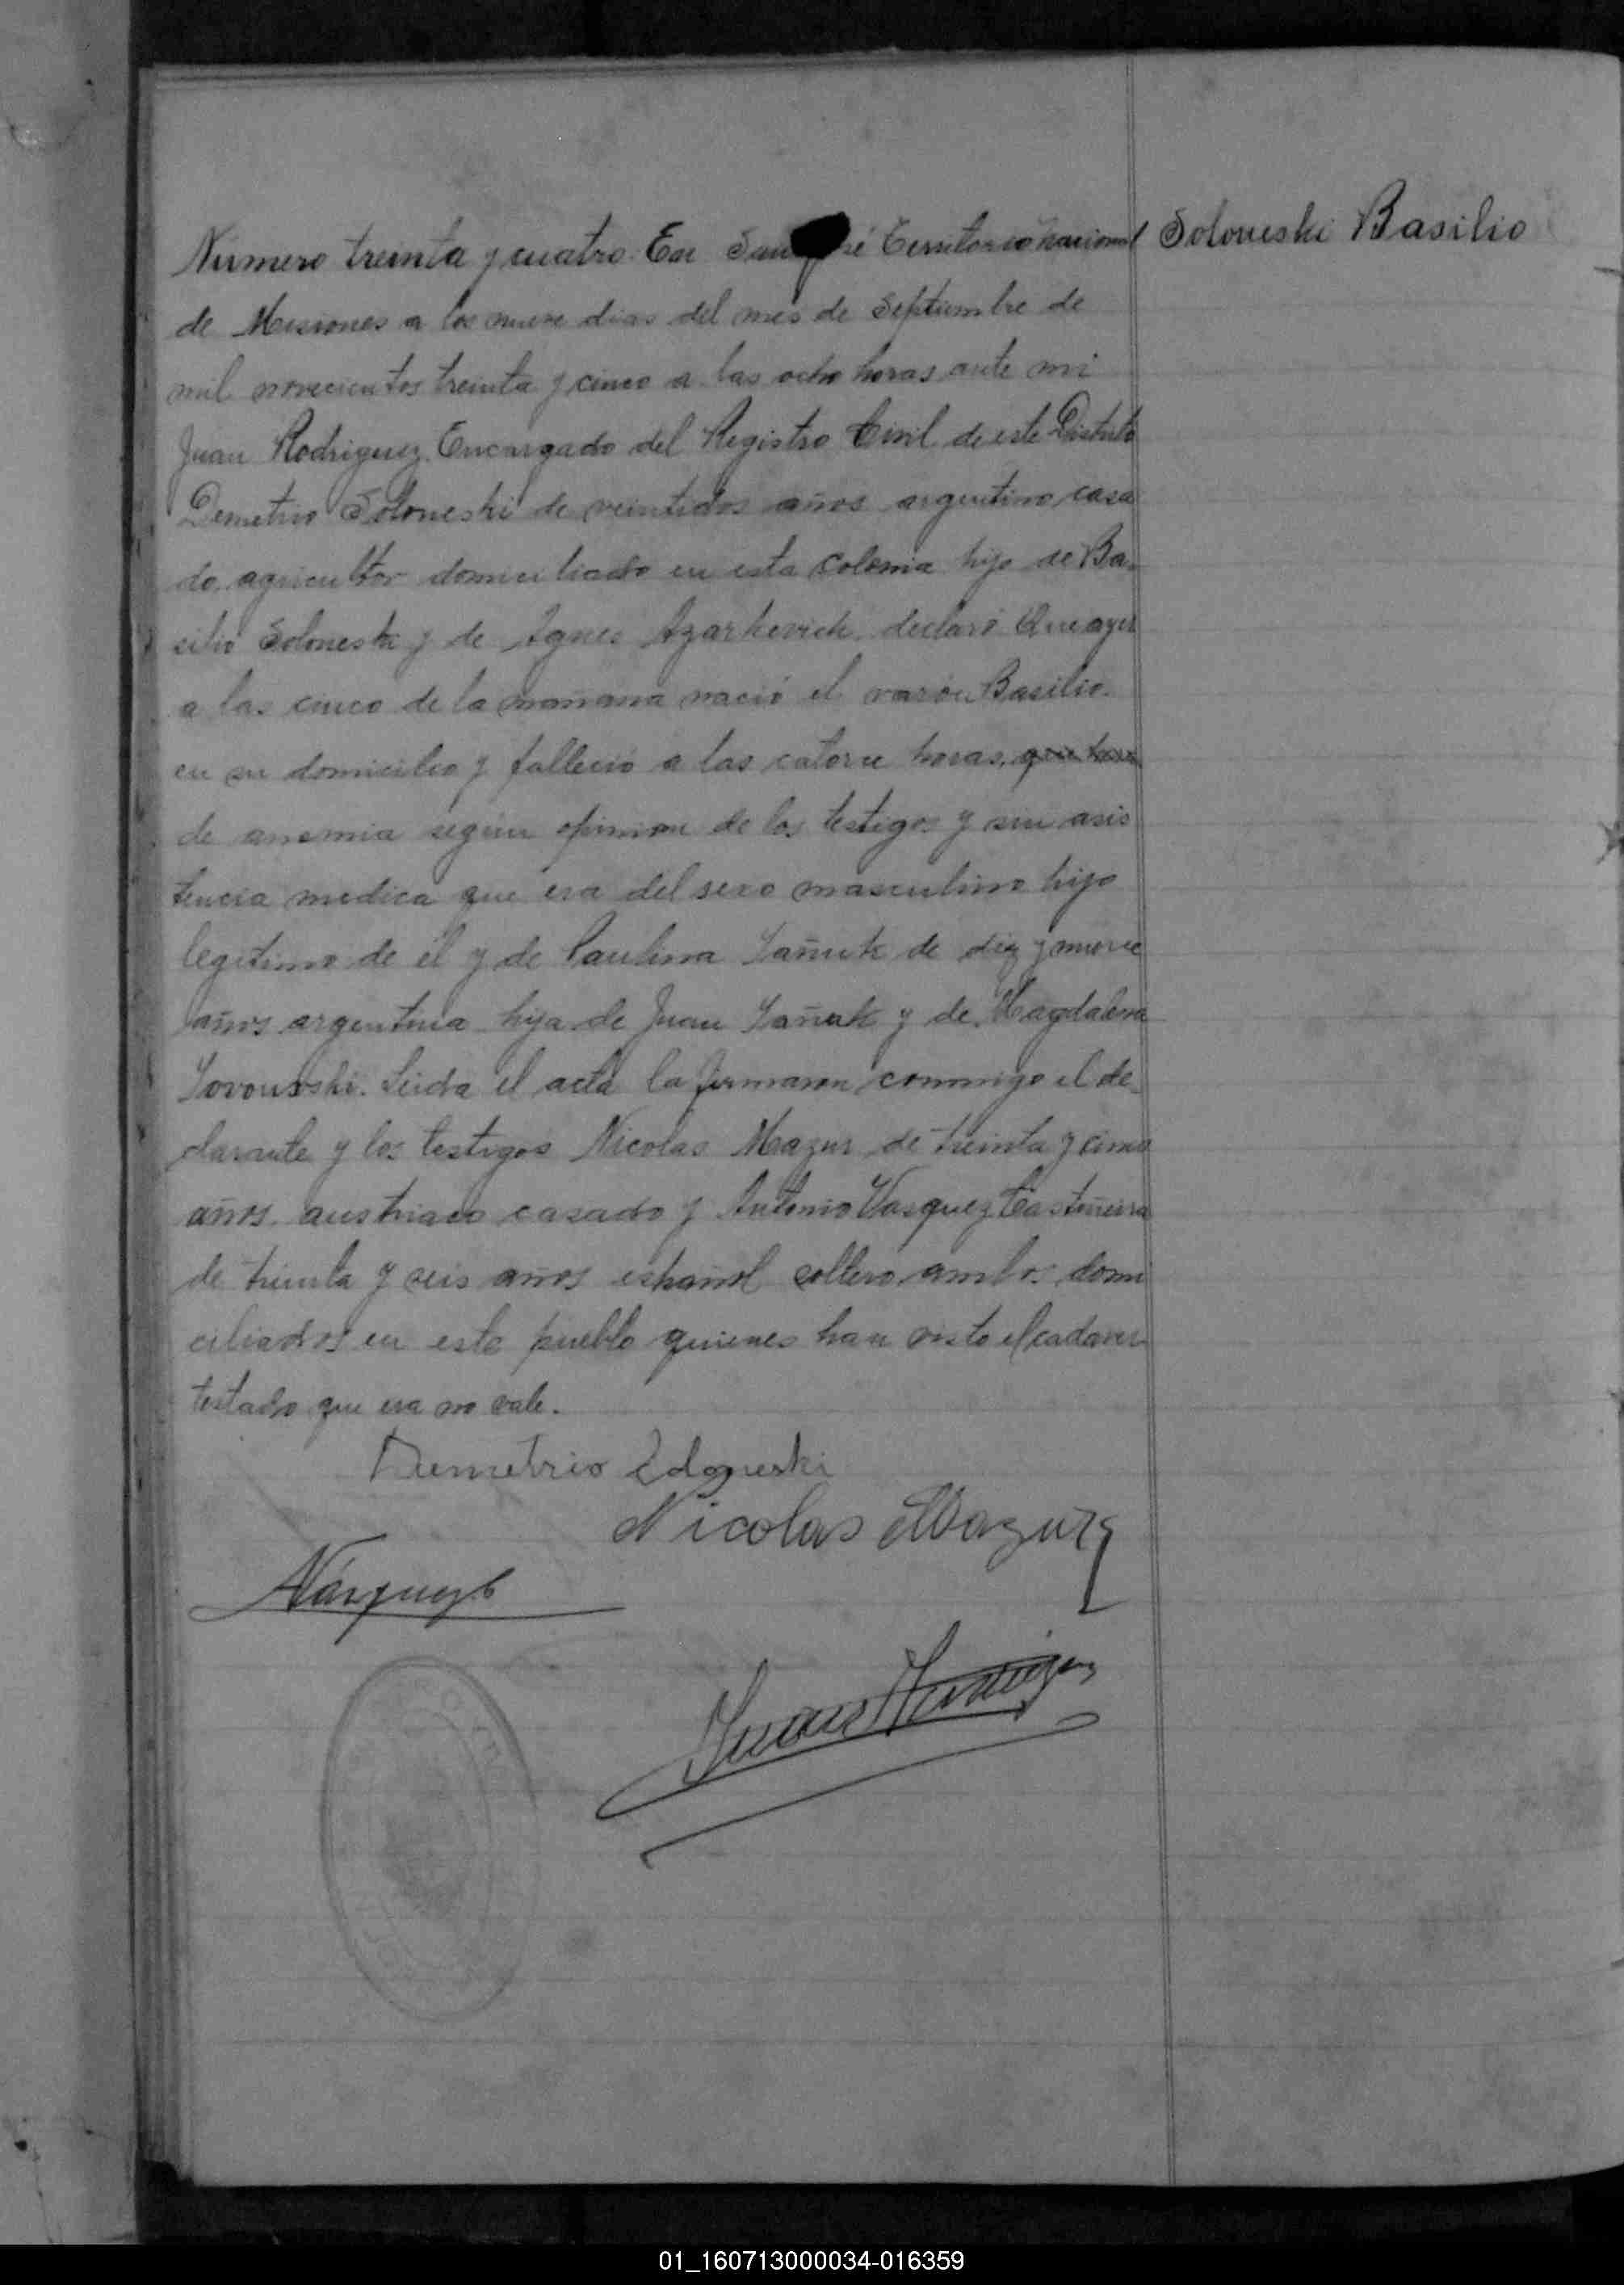 Soloneski Basilio
Número treinta y cuatro. En San José Territorio nacional
de Misiones a los nueve dias del mes de Septiembre de
mil novecientos treinta y cinco a las ocho horas ante mi
Juan Rodriguez Encargado del Registro Civil de este Distrito
Demetrio Soloneski de veintidos años argentino casa
do agricultor domiciliado en esta colonia hijo de Ba-
silio Soloneski y de Agnes Azarkevich declaró Que ayer
a las cinco de la mañana nació el varón Basilio
en su domicilio y falleció a las catorce horas, que
de anemia según opinion de los testigos y sin asis
tencia medica que era del sexo masculino hijo
legitimo de él y de Paulina Yañuk de diez y nueve
años argentina hija de Juan Yañuk y de Magdalena
Leida el acta la firmaron conmigo el de-
clarante y los testigos Nicolas Mazur de treinta y cinco
años austriaco casado y Antonio Vasquez Castiñeira
de treinta y seis años español soltero ambos domi
ciliados en este pueblo quienes han visto el cadaver
testado que era no vale.
Demetrio Soloneski
Nicolas Mazur
AVázquezC
Juan Rodriguez
01_160713000034-016359